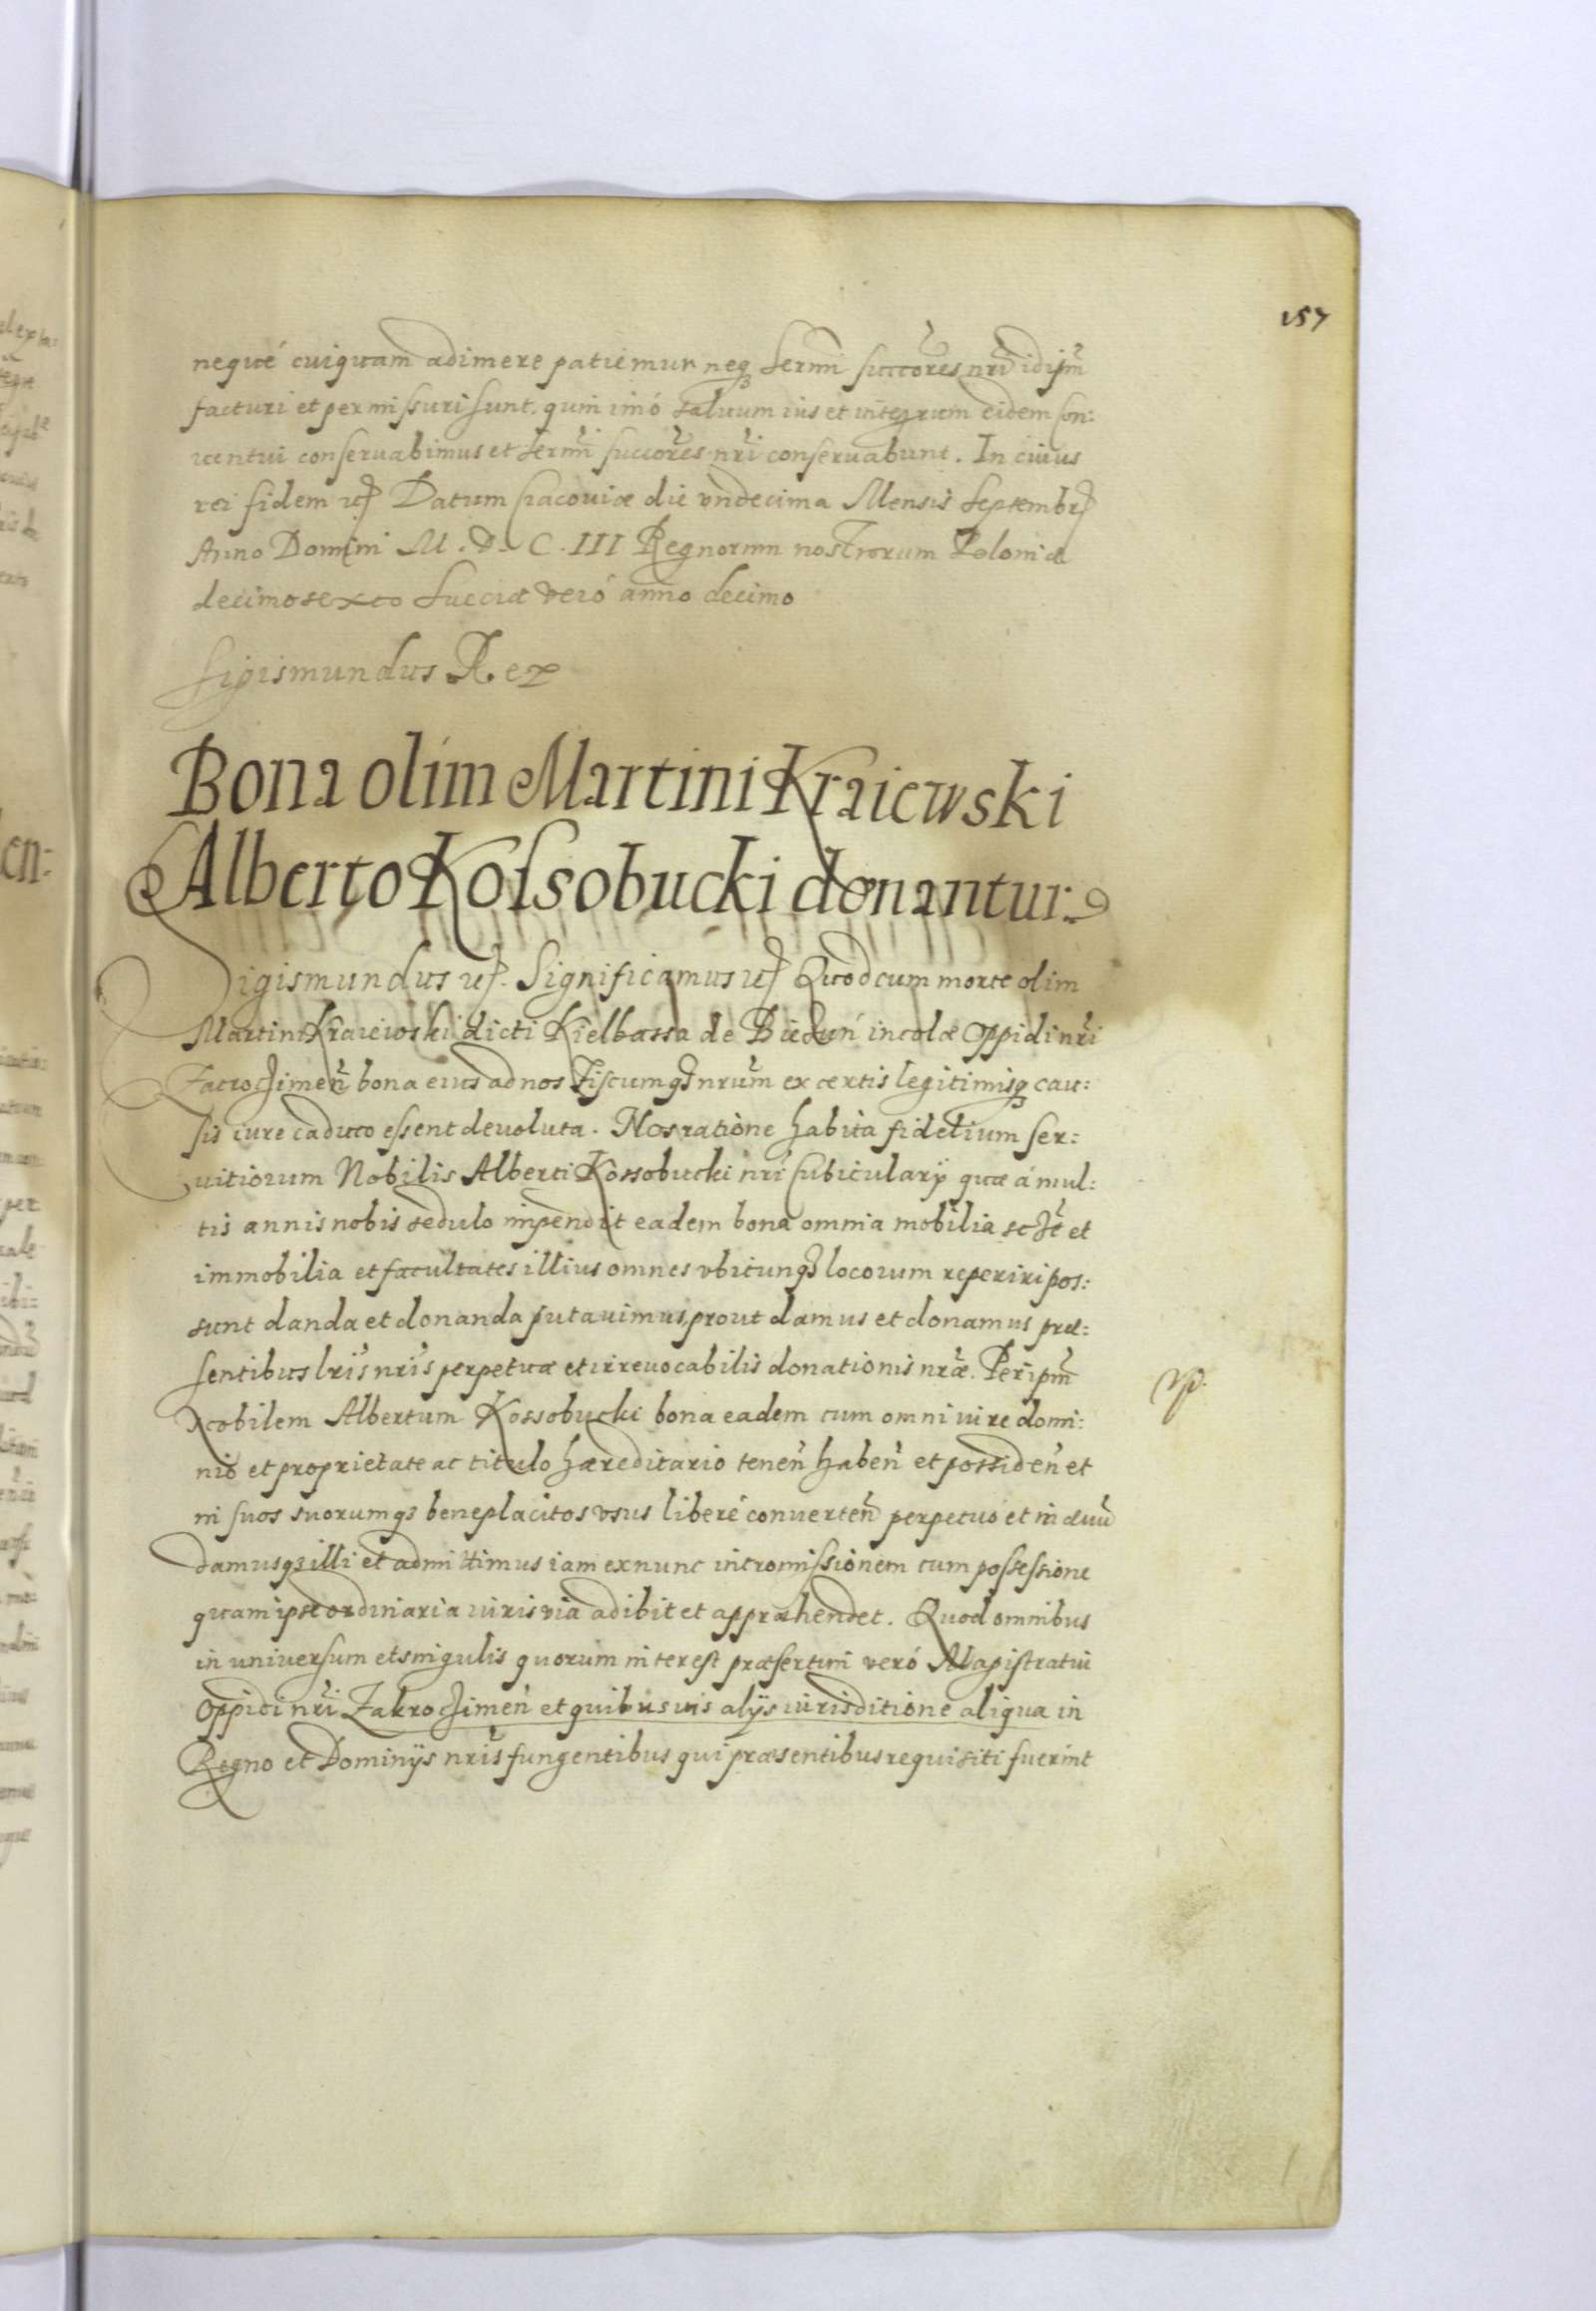 157
neque cuiquam adimere patiemur neq3 Sermi succores nri idipm
facturi et permissuri sunt, quin imó saluum ius et integrum eidem Con:
uentui conseruabimus et Sermi succores nri conseruabunt. In cuius
rei fidem etc Datum Cracouiæ die vndecima Mensis Septembr
Anno Domini M. D. C. III Regnorum nostrorum Poloniæ
decimosexto Sueciæ veró anno decimo
Sigismundus Rex
Bona olim Martini Kraiewski
Alberto Kossobucki donantur
Sigismundus etc. Significamus etc Quod cum morte olim
Martini Kraiewski dicti Kielbassa de Biedun incolæ Oppidi nri
Zacrochimen bona eius ad nos Fiscumq3 nrum ex certis legitimisq3 cau:
sis iure caduco essent deuoluta. Nos ratione habita fidelium ser:
uitiorum Nobilis Alberti Kossobucki nri Cubicularij quæ á mul:
tis annis nobis sedulo inpendit eadem bona omnia mobilia sclt et
immobilia et facultates illius omnes vbicunq3 locorum reperiri pos:
sunt danda et donanda putauimus, prout damus et donamus præ:
sentibus lris nris perpetuæ et irreuocabilis donationis nræ. Per ipm
Nobilem Albertum Kossobucki bona eadem cum omni iure domi:
nio et proprietate ac titulo hæreditario tenen haben et possiden et
in suos suorumq3 beneplacitos vsus liberé conuerten perpetuo et in æuu
damusq3 illi et admittimus iam ex nunc intromissionem cum possessione
quam ipse ordinaria iuris via adibit et appræhendet. Quod omnibus
in uniuersum et singulis quorum interest præsertim veró Magistratui
Oppidi nri Zakrochimen et quibusuis alijs iurisditione aliqua in
Regno et Dominijs nris fungentibus qui præsentibus requisiti fuerint